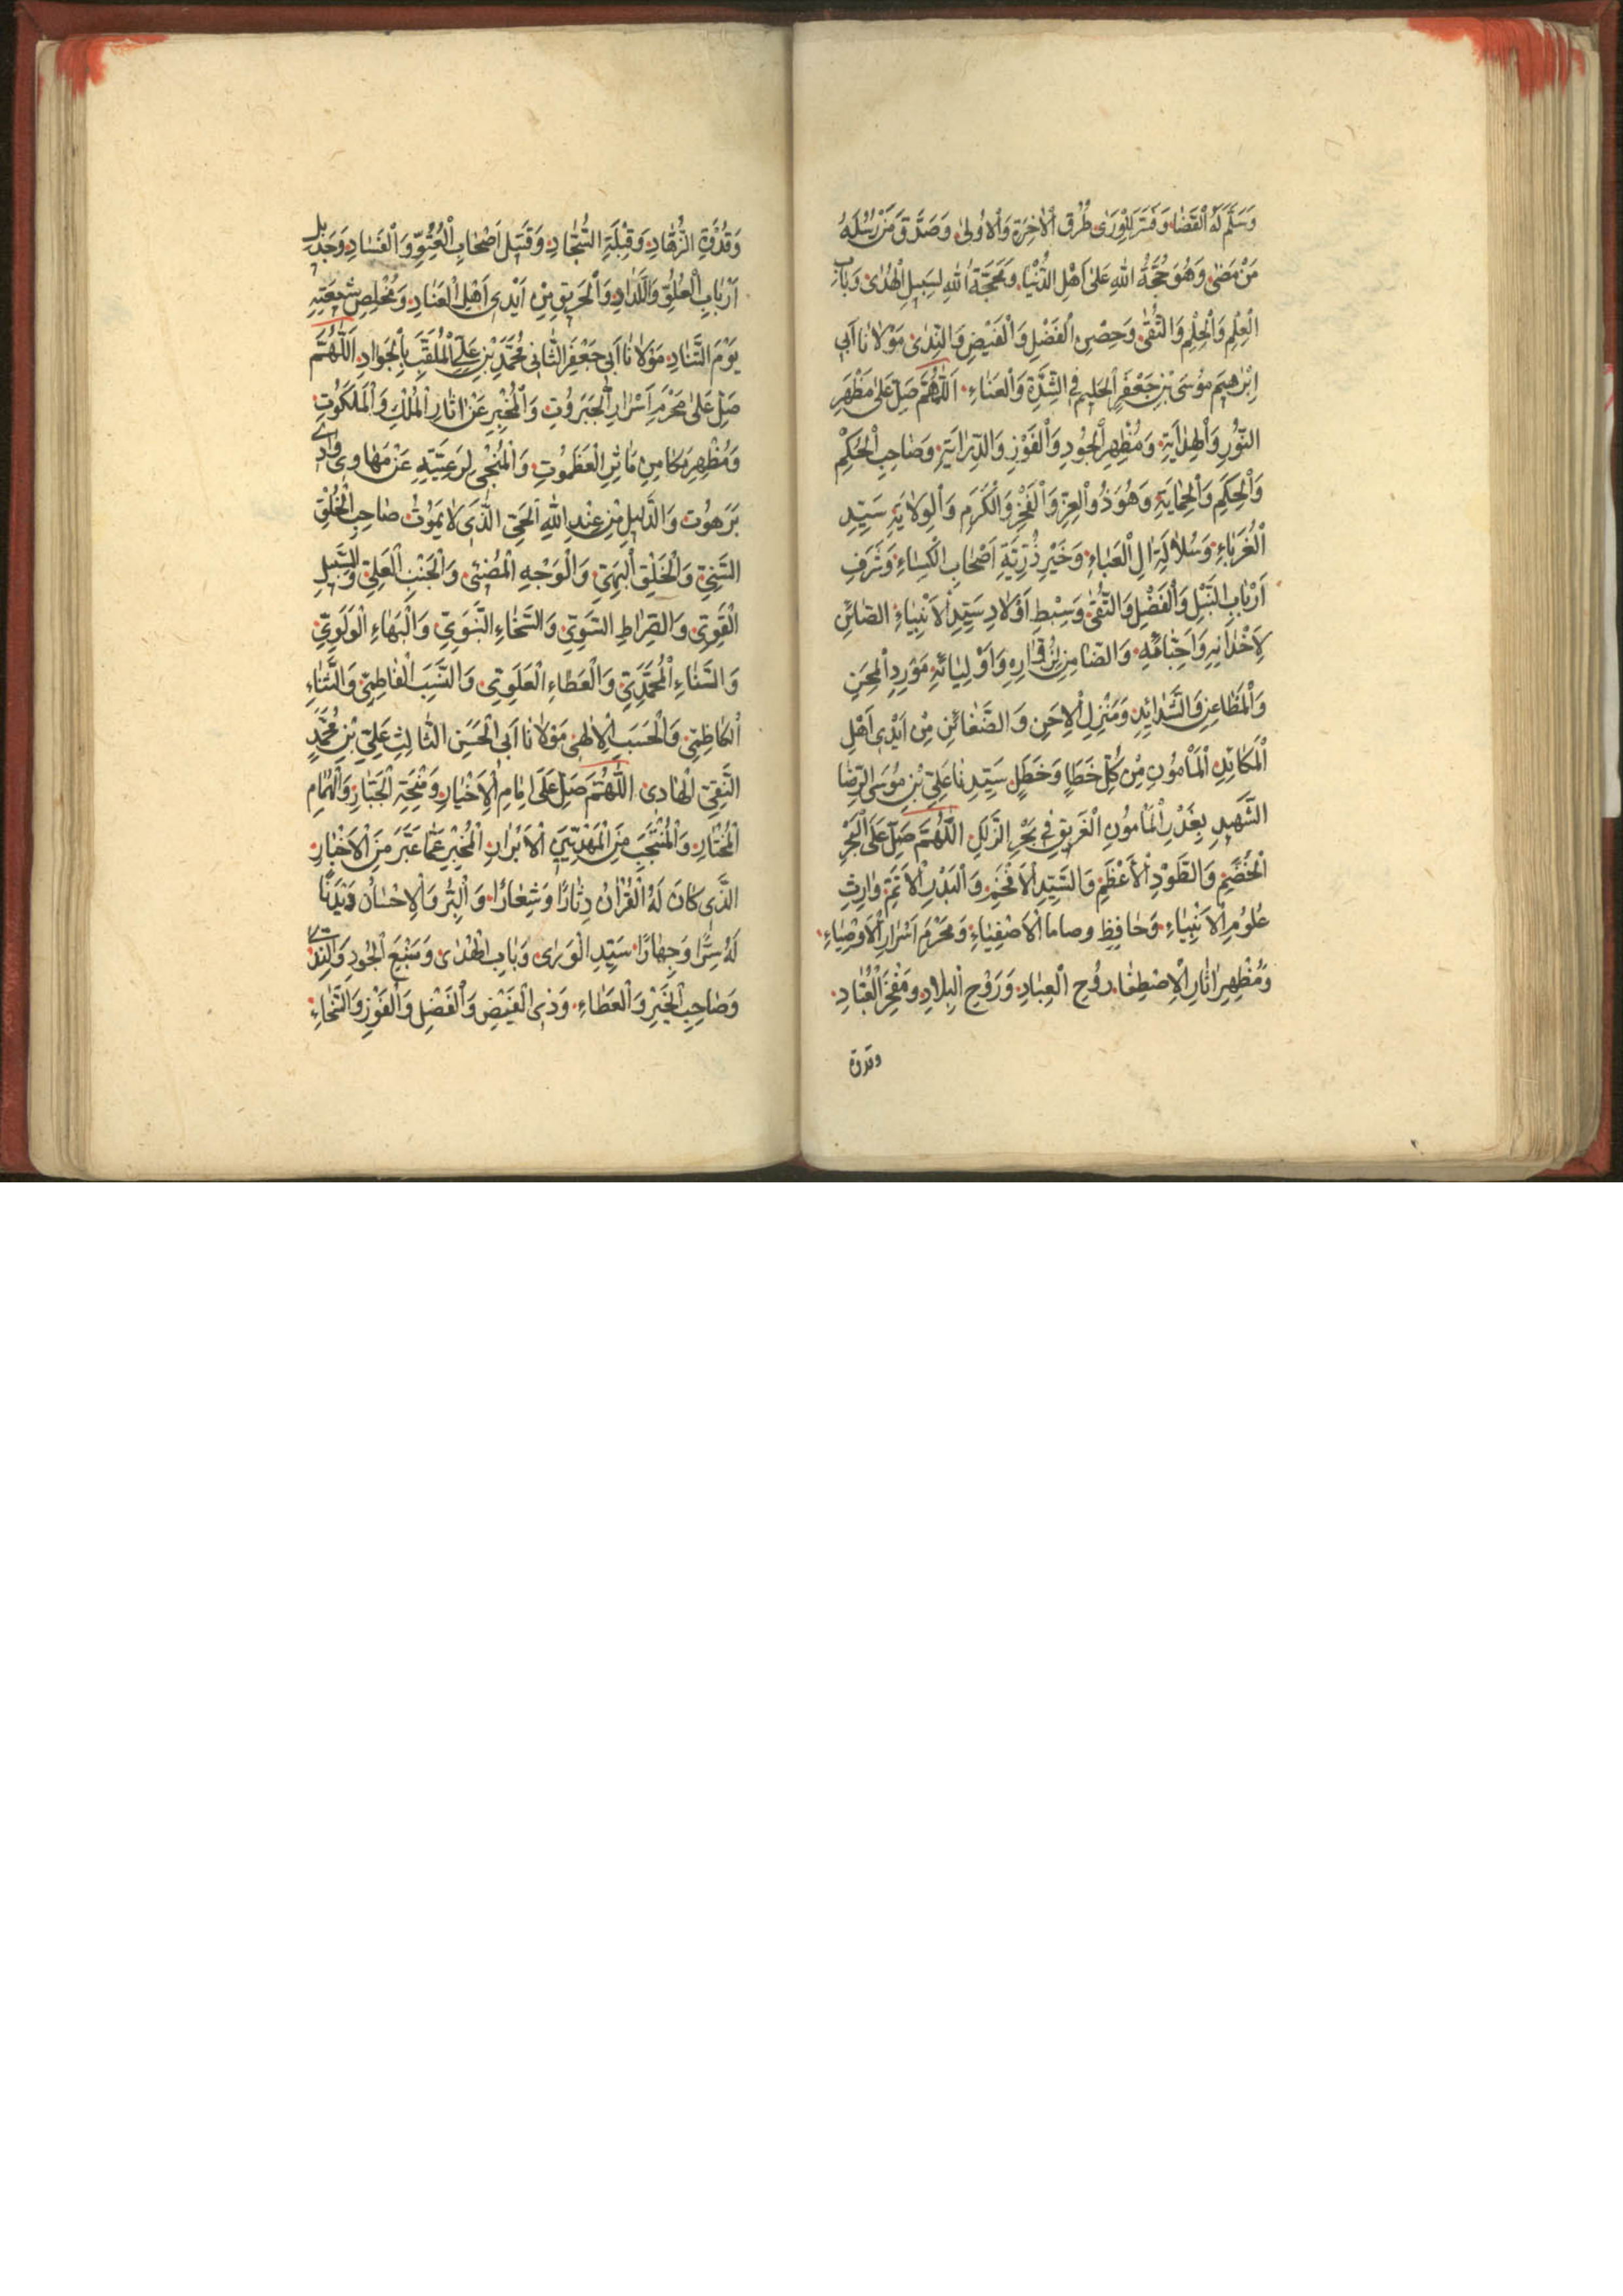 وَسَلَّمَ لَهُ الْقَضَا وَفَسَّرَ لِلْوَرٰى طُرُقَ الْاٰخِرَةِ وَالْاُولٰى وَصَدَّقَ مَنْ رُسُلَهُ
مَنْ مَضٰى وَهُوَ حُجَّةُ اللهِ عَلٰى اَهْلِ الدُّنْيَا وَمَحَجَّةُ اللهِ لِسَبِيلِ الْهُدٰى وَبَابِ
الْعِلْمِ وَالْحِلْمِ وَالتُّقٰى وَحِصْنِ الْفَضْلِ وَالْفَيْضِ وَالنَّدٰى مَوْلَانَا اَبِى
اِبْرٰهِيمَ مُوسَى بْنِ جَعْفَرٍ الْحَلِيمِ فِى الشِّدَّةِ وَالْعَنَاءِ اَللّٰهُمَّ صَلِّ عَلٰى مَظْهَرِ
النُّورِ وَالْهِدَايَةِ وَمُظْهِرِ الْجُودِ وَالْفَوْزِ وَالدِّرَايَةِ وَصَاحِبِ الْحُكْمِ
وَالْحِكَمِ وَالْحِمَايَةِ وَهُوَ ذُو الْعِزِّ وَالْفَخْرِ وَالْكَرَمِ وَالْوِلَايَةِ سَيِّدِ
الْغُرَبَاءِ وَسُلَالَةِ اٰلِ الْعَبَاءِ وَخَيْرِ ذُرِّيَّةِ اَصْحَابِ الْكِسَاءِ وَشَرَفِ
اَرْبَابِ النَّبْلِ وَالْفَضْلِ وَالتُّقٰى وَسِبْطِ اَوْلَادِ سَيِّدِ الْاَنْبِيَاءِ الضَّائِنِ
لِاَخْدَانِهِ وَاَحِبَّائِهِ وَالضَّامِنِ لِزُوَّارِهِ وَاَوْلِيَائِهِ مَوْرِدِ الْمِحَنِ
وَالْمَطَاعِنِ وَالشَّدَائِدِ وَمَنْزِلِ الْاِحَنِ وَالضَّغَائِنِ مِنْ اَيْدِى اَهْلِ
الْمَكَائِدِ الْمَأْمُونِ مِنْ كُلِّ خَطَاٍ وَخَطَلٍ سَيِّدِنَا عَلِىِّ بْنِ مُوسَى الرِّضَا
الشَّهِيدِ بِغَدْرِ الْمَأْمُونِ الْغَرِيقِ فِى بَحْرِ الزَّلَلِ اَللّٰهُمَّ صَلِّ عَلَى الْبَحْرِ
الْخِضَمِّ وَالطَّوْدِ الْاَعْظَمِ وَالسَّيِّدِ الْاَفْخَمِ وَالْبَدْرِ الْاَتَمِّ وَارِثِ
عُلُومِ الْاَنْبِيَاءِ وَحَافِظِ وصاما الْاَصْفِيَاءِ وَمَحْرَمِ اَسْرَارِ الْاَوْصِيَاءِ
وَمُظْهِرِ اٰثَارِ الْاِصْطِفَا رُوحِ الْعِبَادِ وَرَوْحِ الْبِلَادِ وَمَفْخَرِ الْعُبَّادِ
وقدوة
وَقُدْوَةِ الزُّهَّادِ وَقِبْلَةِ السُّجَّادِ وَقَتِيلِ اَصْحَابِ الْعُتُوِّ وَالْفَسَادِ وَجَدِيلِ
اَرْبَابِ الْغُلُوِّ وَاللَّدَادِ وَالْحَرِيقِ مِنْ اَيْدِى اَهْلِ الْعِنَادِ وَمُخْلِصِ شِيعَتِهِ
يَوْمَ التَّنَادِ مَوْلَانَا اَبِى جَعْفَرٍ الثَّانِى مُحَمَّدِ بْنِ عَلِىٍّ الْمُلَقَّبِ بِالْجَوَادِ اَللّٰهُمَّ
صَلِّ عَلٰى مَحْرَمِ اَسْرَارِ الْجَبَرُوتِ وَالْمُخْبِرِ عَنْ اٰثَارِ الْمُلْكِ وَالْمَلَكُوتِ
وَمُظْهِرِ مَكَامِنِ مَاٰثِرِ الْعَظَمُوتِ وَالْمُنْجِى لِرَعِيَّتِهِ عَنْ مَهَاوِى وَادِى
بَرَهُوتَ وَالدَّلِيلِ مِنْ عِنْدِ اللهِ الْحَىِّ الَّذِى لَا يَمُوتُ صَاحِبِ الْخُلْقِ
السَّنِىِّ وَالْخَلْقِ الْبَهِىِّ وَالْوَجْهِ الْمُضِىءِ وَالْجَنْبِ الْعَلِىِّ وَالسَّبِيلِ
الْقَوِىِّ وَالصِّرَاطِ السَّوِىِّ وَالسَّخَاءِ النَّبَوِىِّ وَالْبَهَاءِ الْوَلَوِىِّ
وَالسَّنَاءِ الْمُحَمَّدِىِّ وَالْعَطَاءِ الْعَلَوِىِّ وَالنَّسَبِ الْفَاطِمِىِّ وَالثَّنَاءِ
الْكَاظِمِىِّ وَالْحَسَبِ الْاِلٰهِىِّ مَوْلَانَا اَبِى الْحَسَنِ الثَّالِثِ عَلِىِّ بْنِ مُحَمَّدٍ
النَّقِىِّ الْهَادِى اَللّٰهُمَّ صَلِّ عَلٰى اِمَامِ الْاَخْيَارِ وَمِنْحَةِ الْجَبَّارِ وَالْهُمَامِ
الْمُخْتَارِ وَالْمُنْتَجَبِ مِنَ الْمَهْدِيِّينَ الْاَبْرَارِ الْمُخْبِرِ عَمَّا غَبَّرَ مِنَ الْاَخْبَارِ
الَّذِى كَانَ لَهُ الْقُرْاٰنُ دِثَارًا وَشِعَارًا وَالْبِرُّ وَالْاِحْسَانُ دَيْدَنًا
لَهُ سِرًّا وَجِهَارًا سَيِّدِ الْوَرٰى وَبَابِ الْهُدٰى وَمَنْبَعِ الْجُودِ وَالنَّدٰى
وَصَاحِبِ الْخَيْرِ وَالْعَطَاءِ وَذِى الْفَيْضِ وَالْفَضْلِ وَالْفَوْزِ وَالسَّخَاءِ